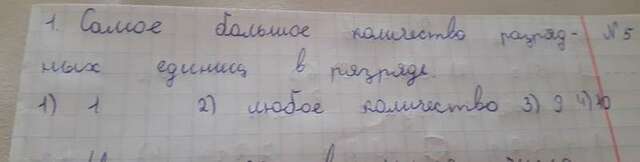 1. Самое большое количество разряд- №5
ных единиц в разряде.
1) 1 2) любое количество 3) 9 4) 10